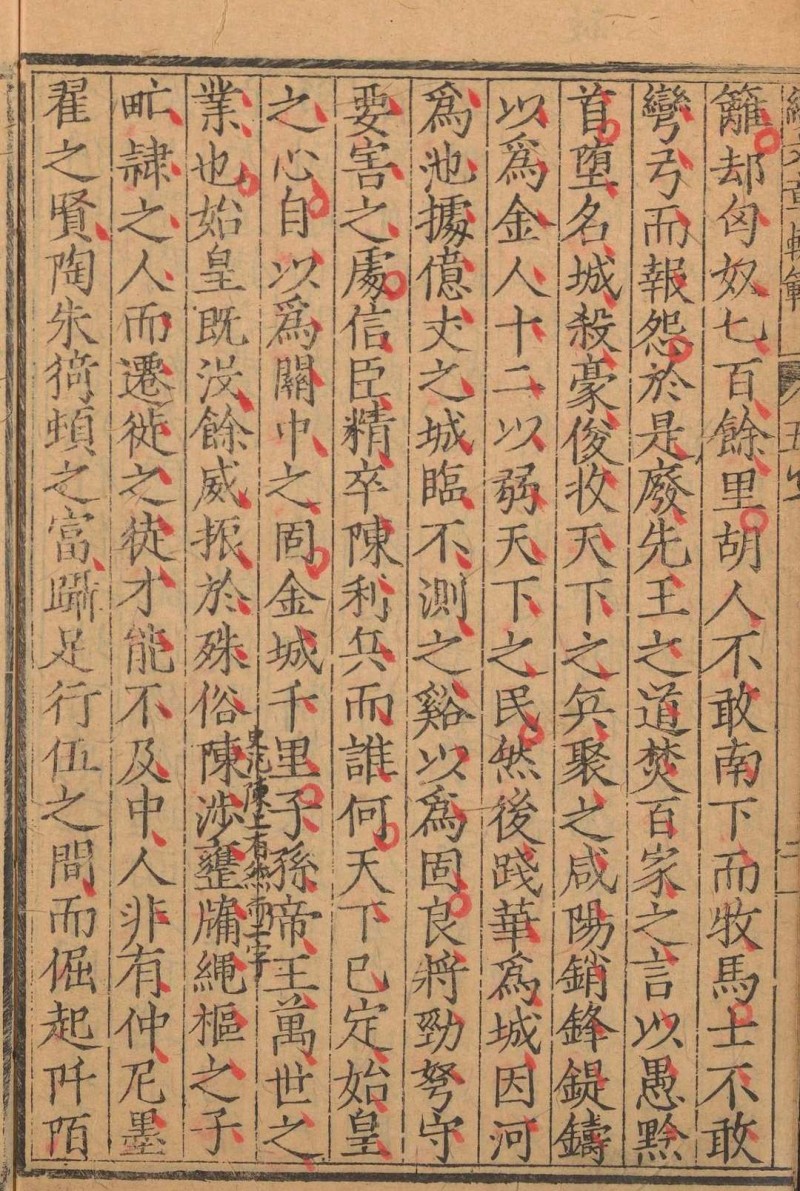 籬却匈奴七百餘里胡人不敢南下而牧馬士不敢
彎弓而報怨於是廢先王之道焚百家之言以愚黔
首墮名城殺豪俊收天下之兵聚之咸陽銷鋒鍉鑄
以爲金人十二以弱天下之民然後踐華爲城因河
爲池據億丈之城臨不測之谿以爲固良將勁弩守
要害之處信臣精卒陳利兵而誰何天下已定始皇
之心自以爲關中之固金城千里子孫帝王萬世之
業也始皇既没餘威振於殊俗陳涉甕牖繩樞之子
史記陳上有然而二字
甿隷之人而遷徙之徒才能不及中人非有仲尼墨
翟之賢陶朱猗頓之富躡足行伍之間而倔起阡陌